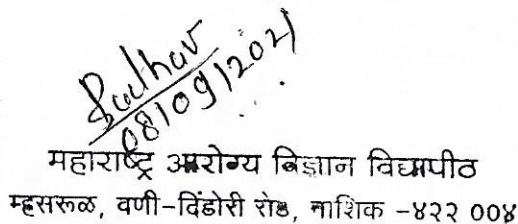 08/09/2021
महाराष्ट्र आरोग्य विज्ञान विद्यापीठ
म्हसरूळ, वणी-दिंडोरी रोड, नाशिक -४२२ ००४